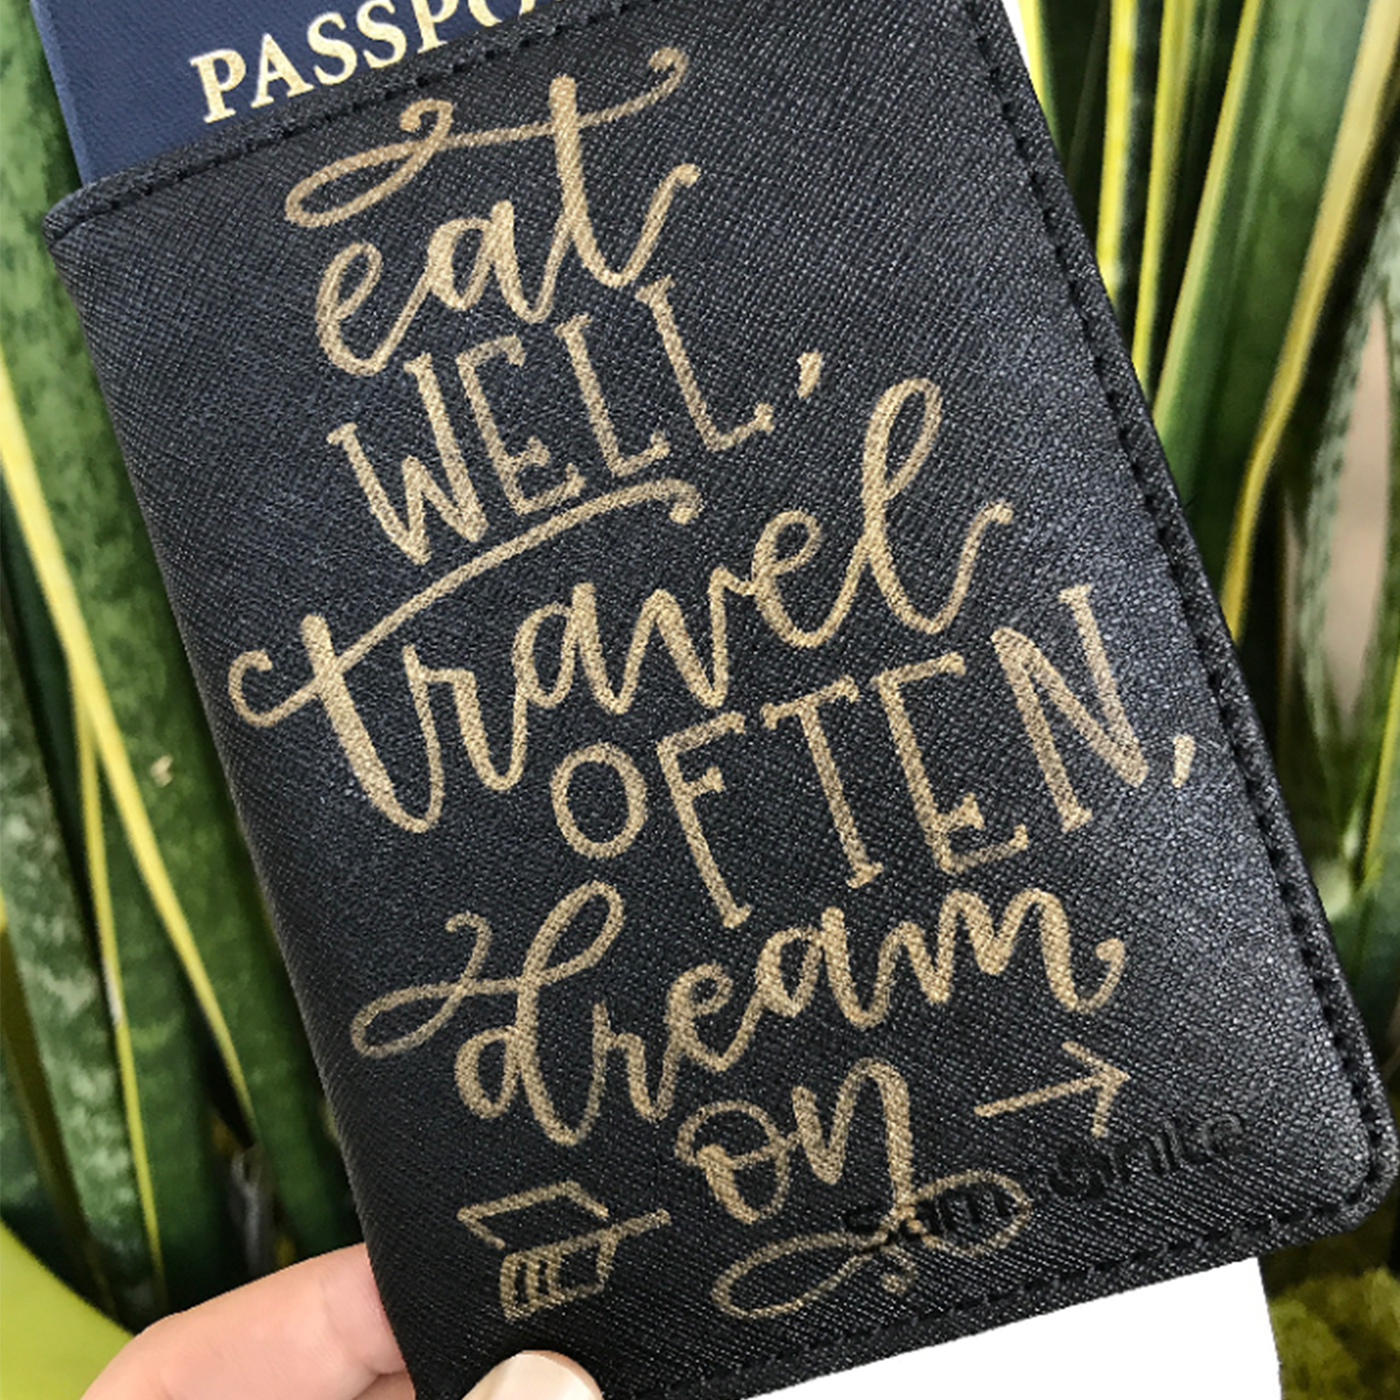 PASSPO
eat
WELL,
travel
OFTEN,
dream
on